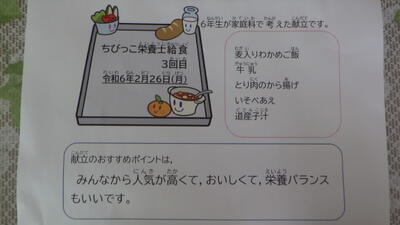 6年生が家庭科で考えた献立です。
ちびっこ栄養士給食
3回目
令和6年2月26日(月)
麦入りわかめご飯
牛乳
とり肉のから揚げ
いそべあえ
道産子汁
献立のおすすめポイントは,
みんなから人気が高くて,おいしくて,栄養バランス
もいいです。